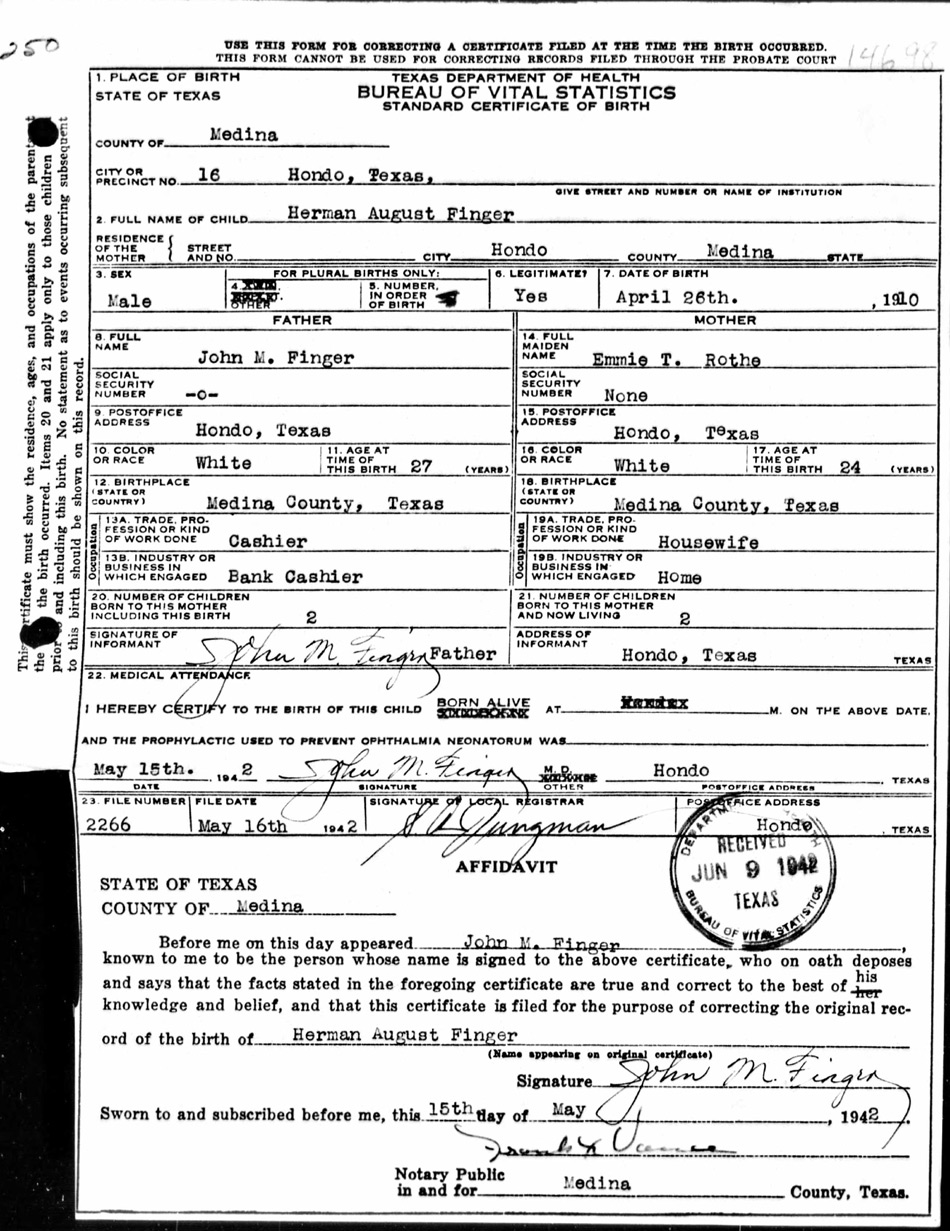 250
USE THIS FORM FOR CORRECTING A CERTIFICATE FILED AT THE TIME THE BIRTH OCCURRED.
THIS FORM CANNOT BE USED FOR CORRECTING RECORDS FILED THROUGH THE PROBATE COURT
14698
1. PLACE OF BIRTH
STATE OF TEXAS
TEXAS DEPARTMENT OF HEALTH
BUREAU OF VITAL STATISTICS
STANDARD CERTIFICATE OF BIRTH
COUNTY OF Medina
CITY OR PRECINCT NO. 16 Hondo, Texas,
GIVE STREET AND NUMBER OR NAME OF INSTITUTION
2. FULL NAME OF CHILD Herman August Finger
RESIDENCE OF THE MOTHER { STREET AND NO. CITY Hondo COUNTY Medina STATE
3. SEX Male
FOR PLURAL BIRTHS ONLY:
4. OTHER
5. NUMBER, IN ORDER OF BIRTH
6. LEGITIMATE? Yes
7. DATE OF BIRTH April 26th. , 1910
FATHER
8. FULL NAME John M. Finger
SOCIAL SECURITY NUMBER -o-
9. POSTOFFICE ADDRESS Hondo, Texas
10. COLOR OR RACE White
11. AGE AT TIME OF THIS BIRTH 27 (YEARS)
12. BIRTHPLACE (STATE OR COUNTRY) Medina County, Texas
Occupation
13A. TRADE, PROFESSION OR KIND OF WORK DONE Cashier
13B. INDUSTRY OR BUSINESS IN WHICH ENGAGED Bank Cashier
MOTHER
14. FULL MAIDEN NAME Emmie T. Rothe
SOCIAL SECURITY NUMBER None
15. POSTOFFICE ADDRESS Hondo, Texas
16. COLOR OR RACE White
17. AGE AT TIME OF THIS BIRTH 24 (YEARS)
18. BIRTHPLACE (STATE OR COUNTRY) Medina County, Texas
Occupation
19A. TRADE, PROFESSION OR KIND OF WORK DONE Housewife
19B. INDUSTRY OR BUSINESS IN WHICH ENGAGED Home
20. NUMBER OF CHILDREN BORN TO THIS MOTHER INCLUDING THIS BIRTH 2
21. NUMBER OF CHILDREN BORN TO THIS MOTHER AND NOW LIVING 2
SIGNATURE OF INFORMANT John M. Finger Father
ADDRESS OF INFORMANT Hondo, Texas TEXAS
22. MEDICAL ATTENDANCE
I HEREBY CERTIFY TO THE BIRTH OF THIS CHILD BORN ALIVE AT M. ON THE ABOVE DATE,
AND THE PROPHYLACTIC USED TO PREVENT OPHTHALMIA NEONATORUM WAS
May 15th. , 1942 John M. Finger M. D. OTHER Hondo TEXAS
DATE SIGNATURE POSTOFFICE ADDRESS
23. FILE NUMBER 2266
FILE DATE May 16th 1942
SIGNATURE OF LOCAL REGISTRAR Jungman
POSTOFFICE ADDRESS Hondo , TEXAS
DEPARTMENT OF HEALTH
RECEIVED
JUN 9 1942
TEXAS
BUREAU OF VITAL STATISTICS
AFFIDAVIT
STATE OF TEXAS
COUNTY OF Medina
Before me on this day appeared John M. Finger ,
known to me to be the person whose name is signed to the above certificate, who on oath deposes
and says that the facts stated in the foregoing certificate are true and correct to the best of his her
knowledge and belief, and that this certificate is filed for the purpose of correcting the original rec-
ord of the birth of Herman August Finger
(Name appearing on original certificate)
Signature John M. Finger
Sworn to and subscribed before me, this 15th day of May , 1942.
Frank X Vance
Notary Public
in and for Medina County, Texas.
This certificate must show the residence, ages, and occupations of the parents
the birth occurred. Items 20 and 21 apply only to those children
prior and including this birth. No statement as to events occurring subsequent
to this birth should be shown on this record.